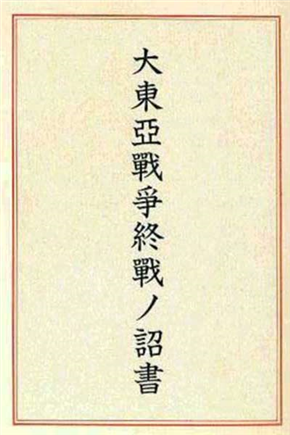 大東亞戰爭終戰ノ詔書